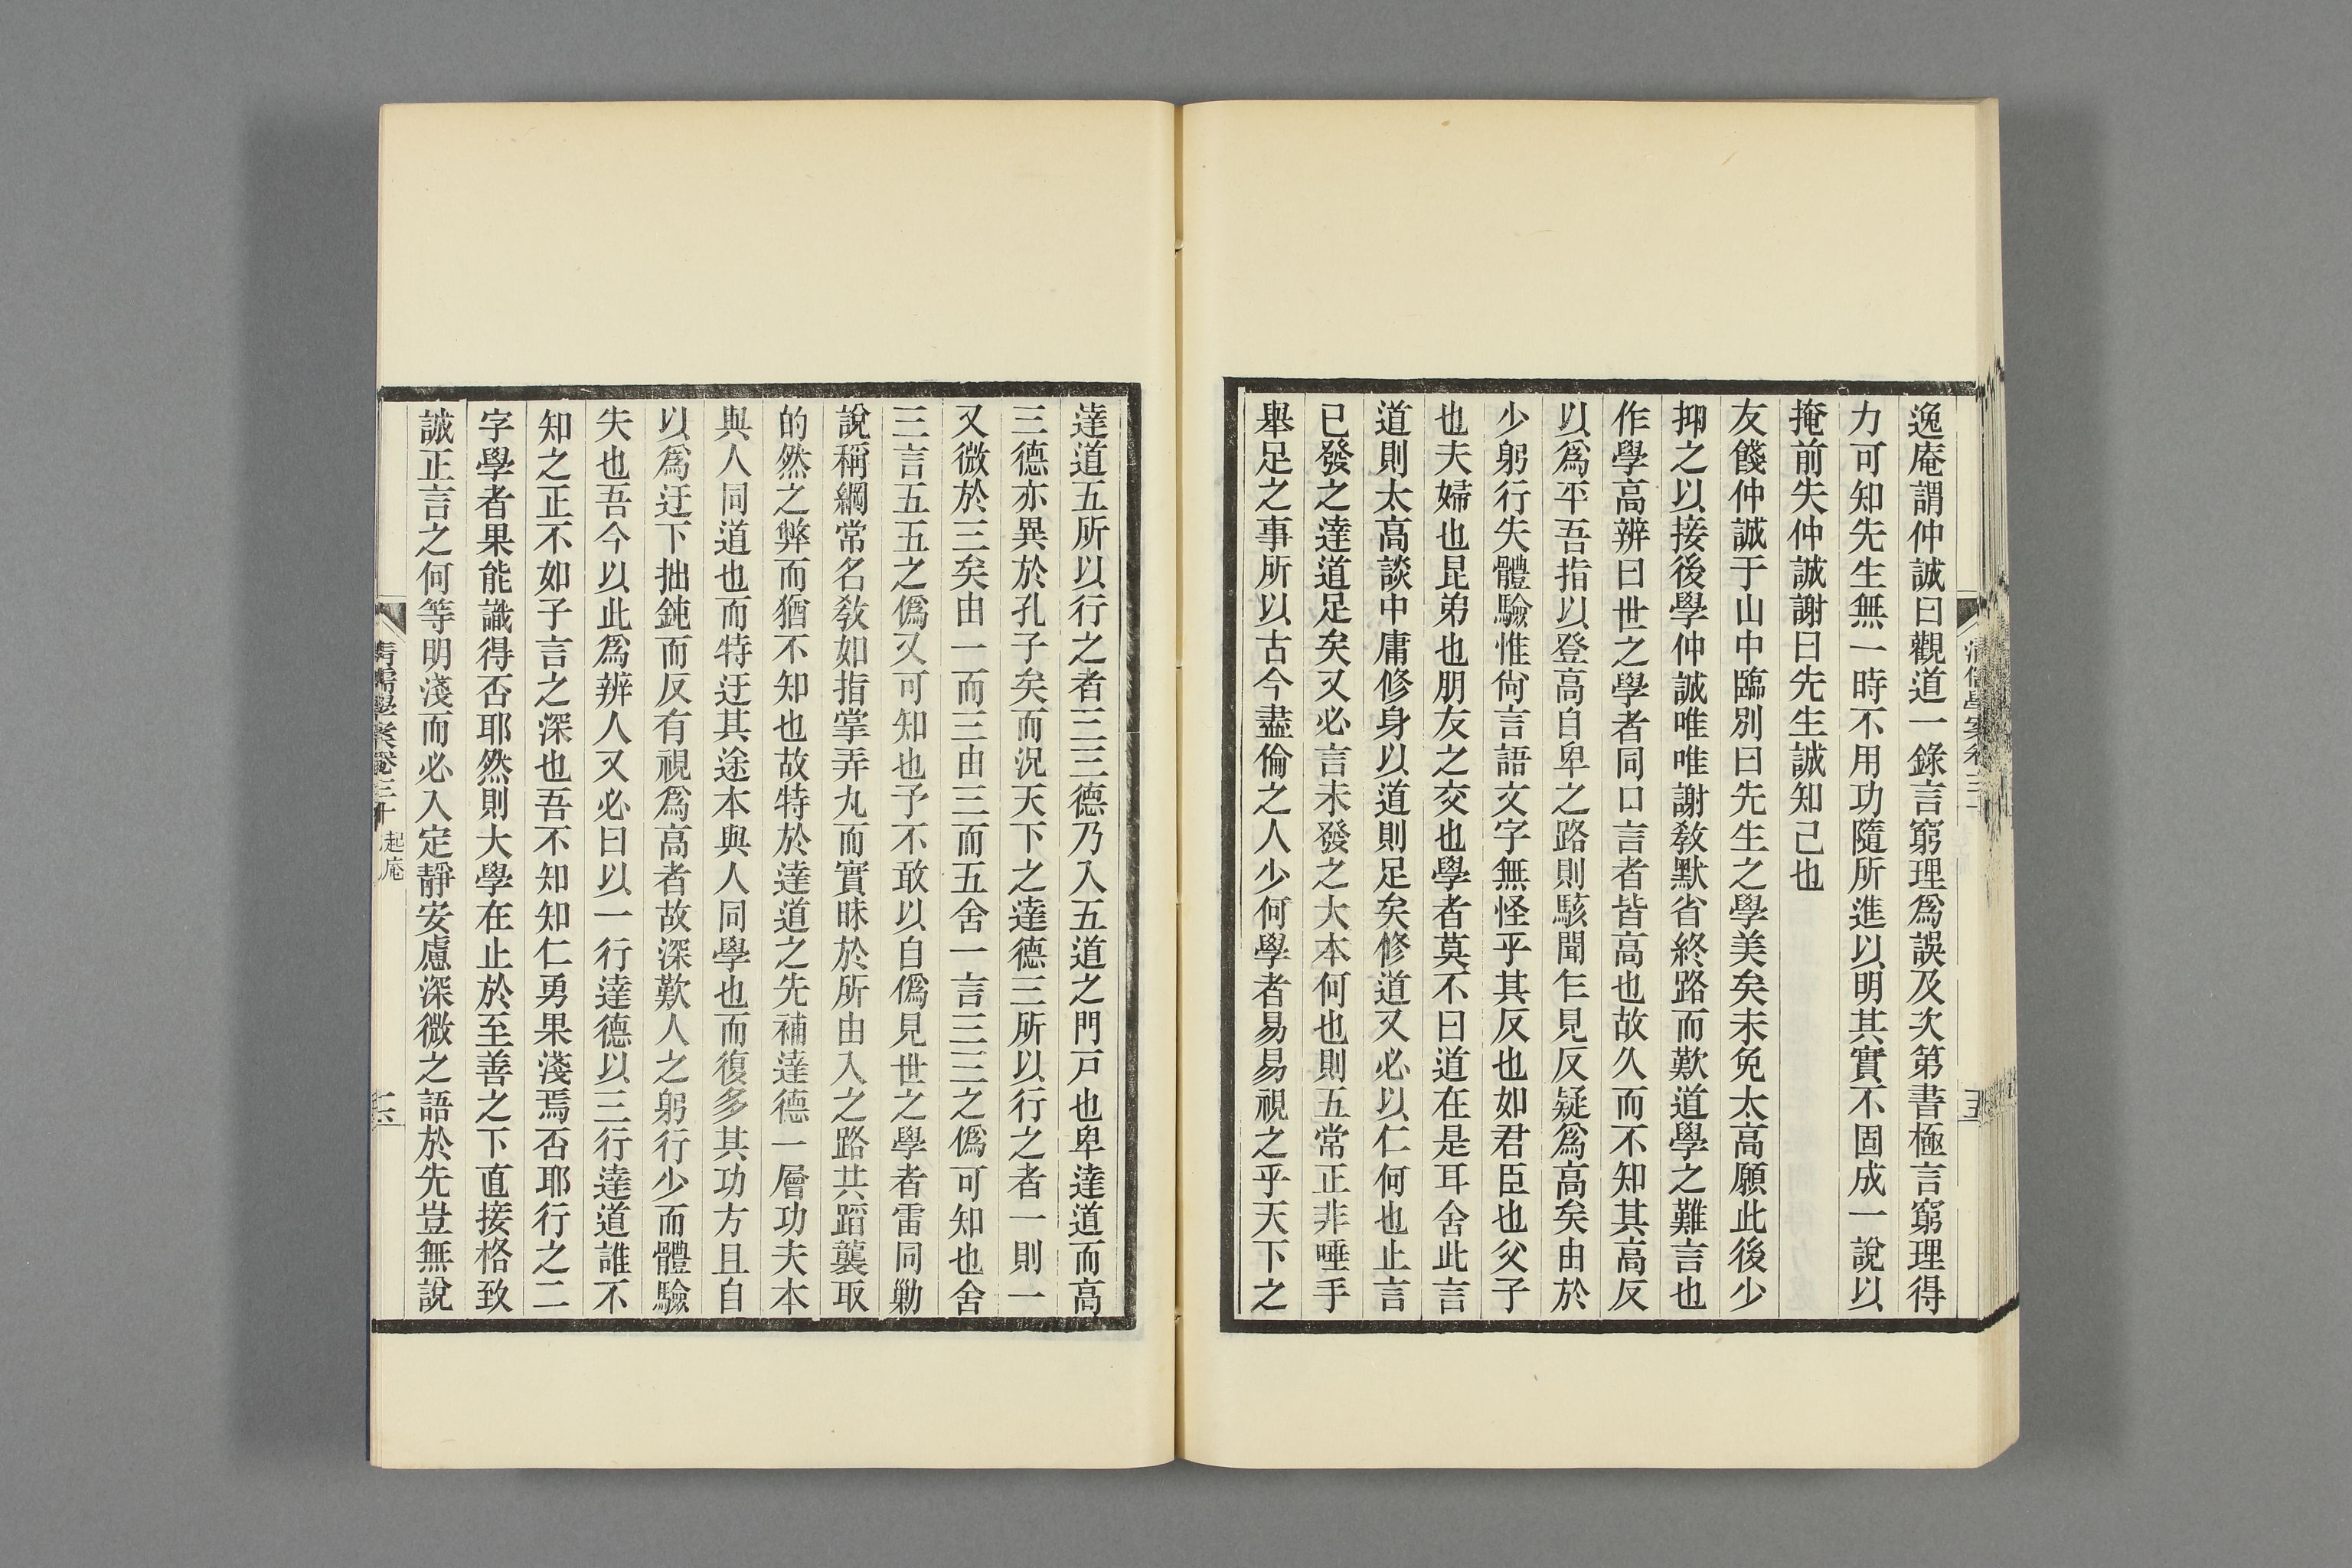 逸庵謂仲誠曰觀道一錄言窮理爲誤及次第書極言窮理得
力可知先生無一時不用功隨所進以明其實不固成一說以
掩前失仲誠謝曰先生誠知己也
友餞仲誠于山中臨別曰先生之學美矣未免太高願此後少
抑之以接後學仲誠唯唯謝敎默省終路而歎道學之難言也
作學高辨曰世之學者同口言者皆高也故久而不知其高反
以爲平吾指以登高自卑之路則駭聞乍見反疑爲高矣由於
少躬行失體驗惟尙言語文字無怪乎其反也如君臣也父子
也夫婦也昆弟也朋友之交也學者莫不曰道在是耳舍此言
道則太高談中庸修身以道則足矣修道又必以仁何也止言
已發之達道足矣又必言未發之大本何也則五常正非唾手
舉足之事所以古今盡倫之人少何學者易易視之乎天下之
達道五所以行之者三三德乃入五道之門戸也卑達道而高
三德亦異於孔子矣而況天下之達德三所以行之者一則一
又微於三矣由一而三由三而五舍一言三三之僞可知也舍
三言五五之僞又可知也予不敢以自僞見世之學者雷同勦
說稱綱常名敎如指掌弄丸而實昧於所由入之路共蹈襲取
的然之弊而猶不知也故特於達道之先補達德一層功夫本
與人同道也而特迂其途本與人同學也而復多其功方且自
以爲迂下拙鈍而反有視爲高者故深歎人之躬行少而體驗
失也吾今以此爲辨人又必曰以一行達德以三行達道誰不
知之正不如子言之深也吾不知知仁勇果淺焉否耶行之二
字學者果能識得否耶然則大學在止於至善之下直接格致
誠正言之何等明淺而必入定靜安慮深微之語於先豈無說
清儒學案卷三十 起庵